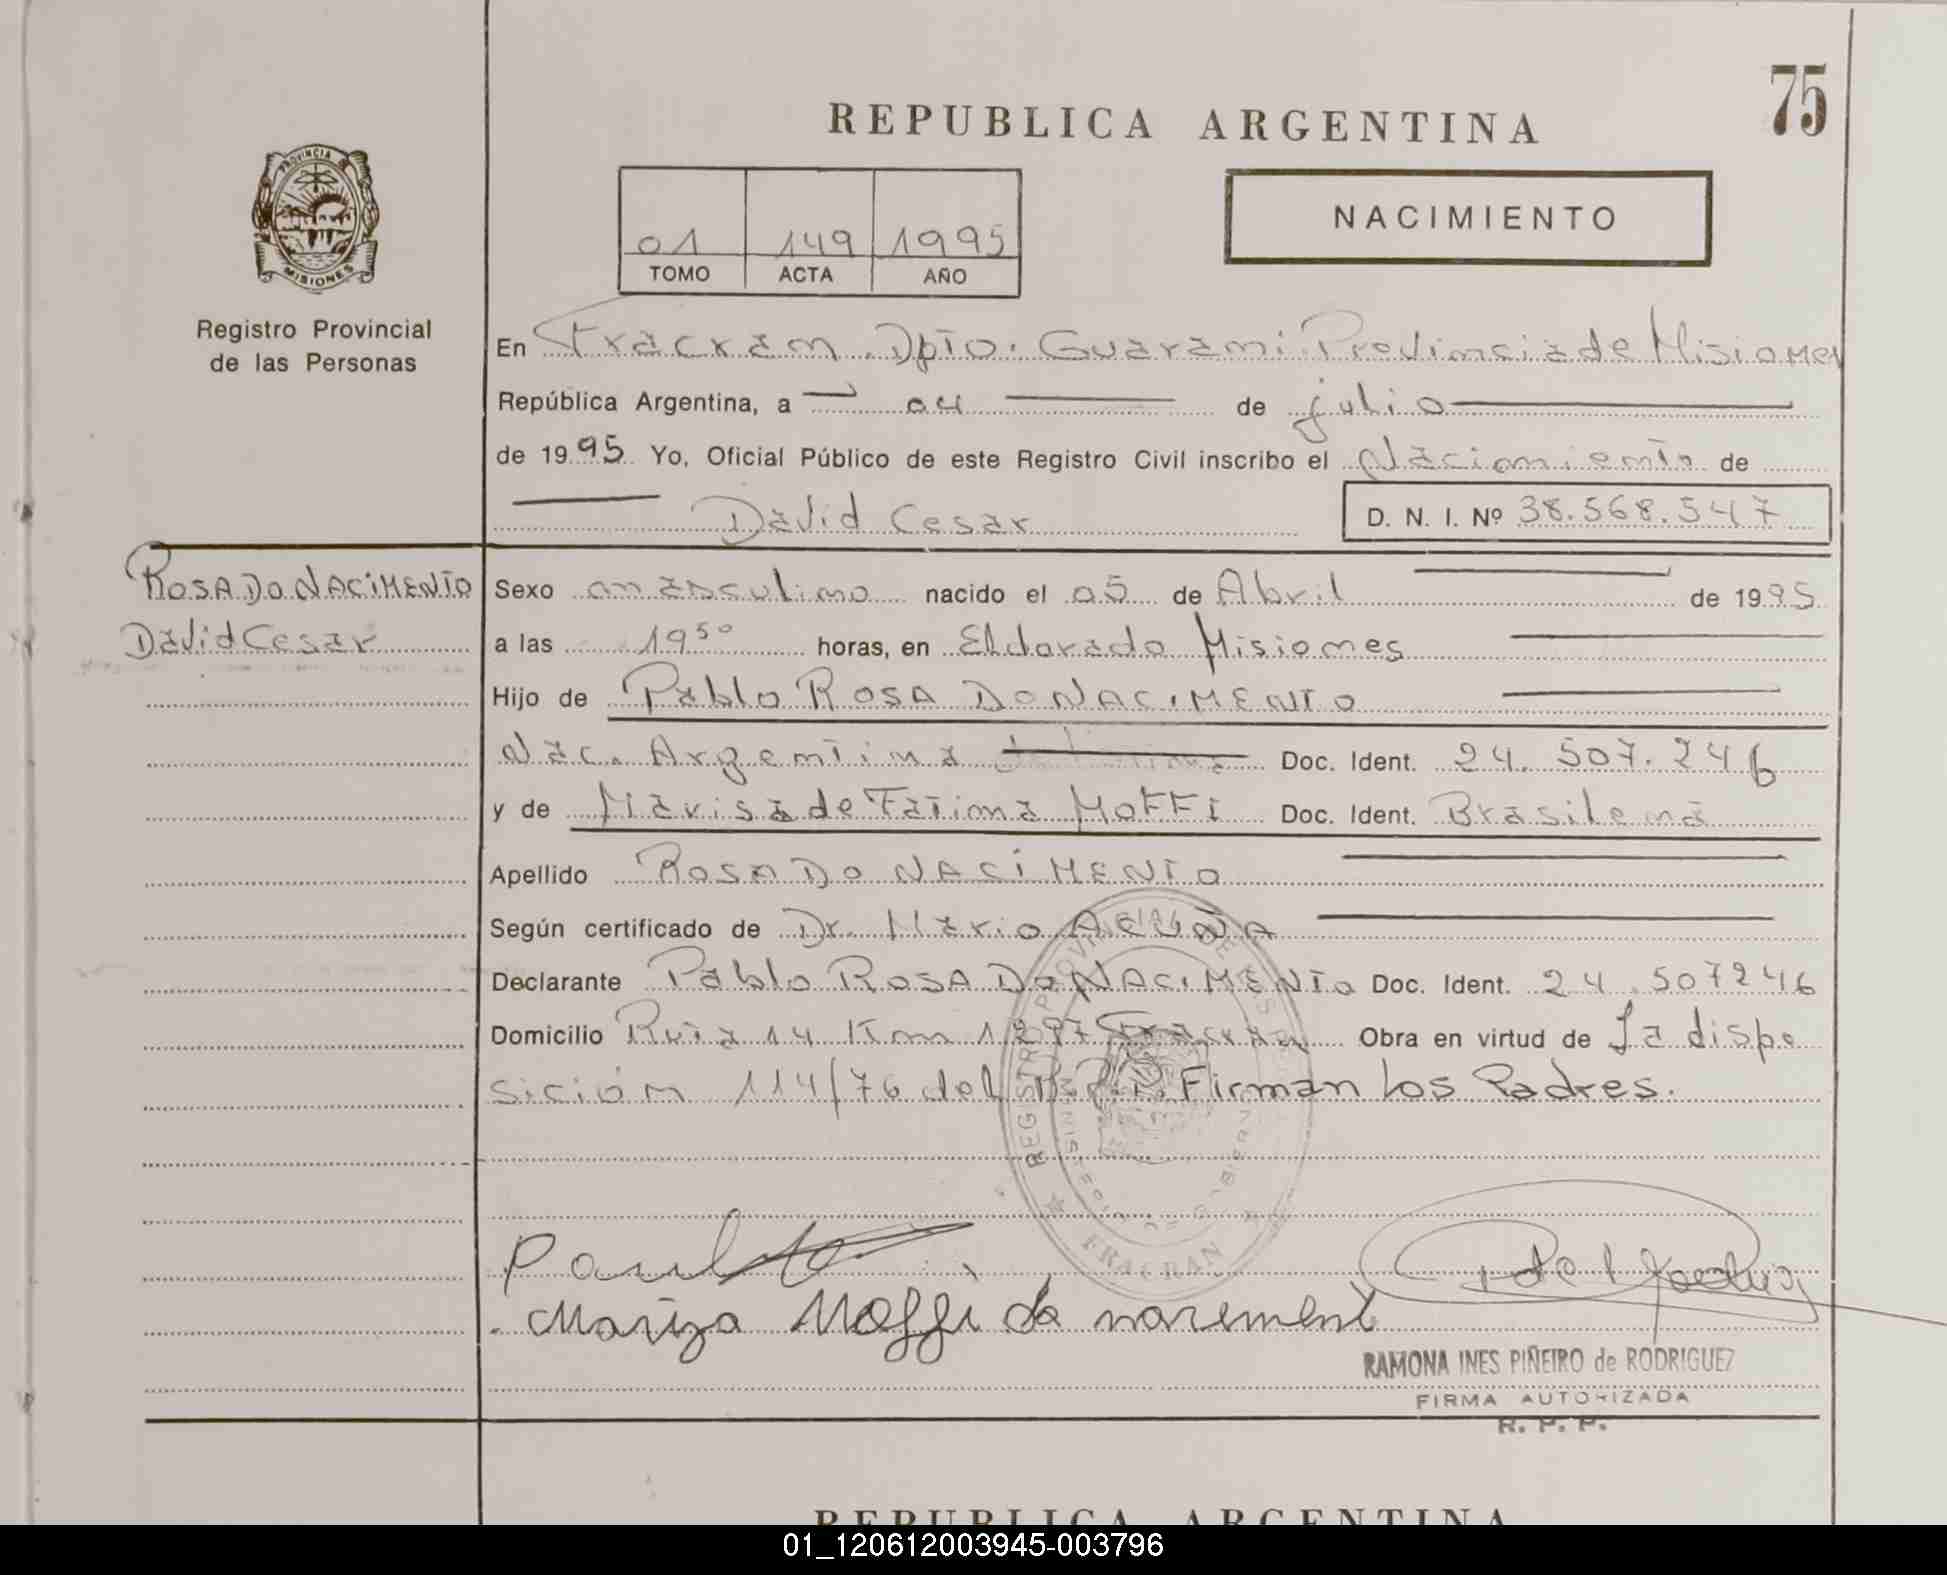 75
REPUBLICA ARGENTINA
PROVINCIA DE
MISIONES
Registro Provincial
de las Personas
01 149 1995
TOMO ACTA AÑO
NACIMIENTO
En Fracran. Dpto. Guarani Provincia de Misiones
República Argentina, a 04 de julio
de 1995 Yo, Oficial Público de este Registro Civil inscribo el Nacimiento de
David Cesar D. N. I. Nº 38.568.547
ROSA DO NACIMENTO
David Cesar
Sexo masculino nacido el 05 de Abril de 1995
a las 19 50 horas, en Eldorado Misiones
Hijo de Pablo ROSA DO NACIMENTO
Nac. Argentina Doc. Ident. 24.507.246
y de Marisa de Fatima MOFFI Doc. Ident. Brasilena
Apellido ROSA DO NACIMENTO
Según certificado de Dr. Mario ACUÑA
Declarante Pablo ROSA DO NACIMENTO Doc. Ident. 24.507246
Domicilio Ruta 14 Km 1297 Fracran Obra en virtud de La dispo
sición 114/76 del Firman los Padres.
REGISTRO PROVINCIAL DE LAS
MINISTERIO DE GOBIERNO
FRACRAN
Mariza Moffi do
RAMONA INES PIÑEIRO de RODRIGUEZ
FIRMA AUTORIZADA
R. P. P.
REPUBLICA ARGENTINA
01_120612003945-003796